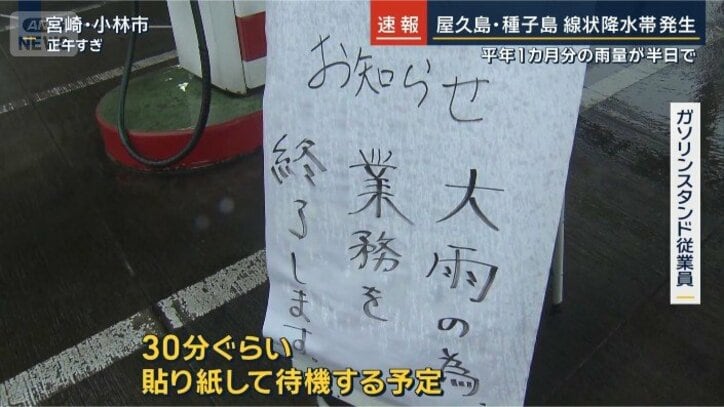 ANN NEWS
宮崎・小林市
正午すぎ
速報
屋久島・種子島 線状降水帯発生
平年1カ月分の雨量が半日で
ガソリンスタンド従業員
お知らせ
大雨の為、
業務を
終了します。
30分ぐらい
貼り紙して待機する予定